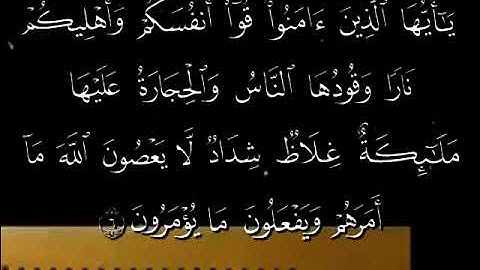 يَـٰٓأَيُّهَا ٱلَّذِينَ ءَامَنُوا۟ قُوٓا۟ أَنفُسَكُمْ وَأَهْلِيكُمْ
نَارًا وَقُودُهَا ٱلنَّاسُ وَٱلْحِجَارَةُ عَلَيْهَا
مَلَـٰٓئِكَةٌ غِلَاظٌ شِدَادٌ لَّا يَعْصُونَ ٱللَّهَ مَآ
أَمَرَهُمْ وَيَفْعَلُونَ مَا يُؤْمَرُونَ ٦